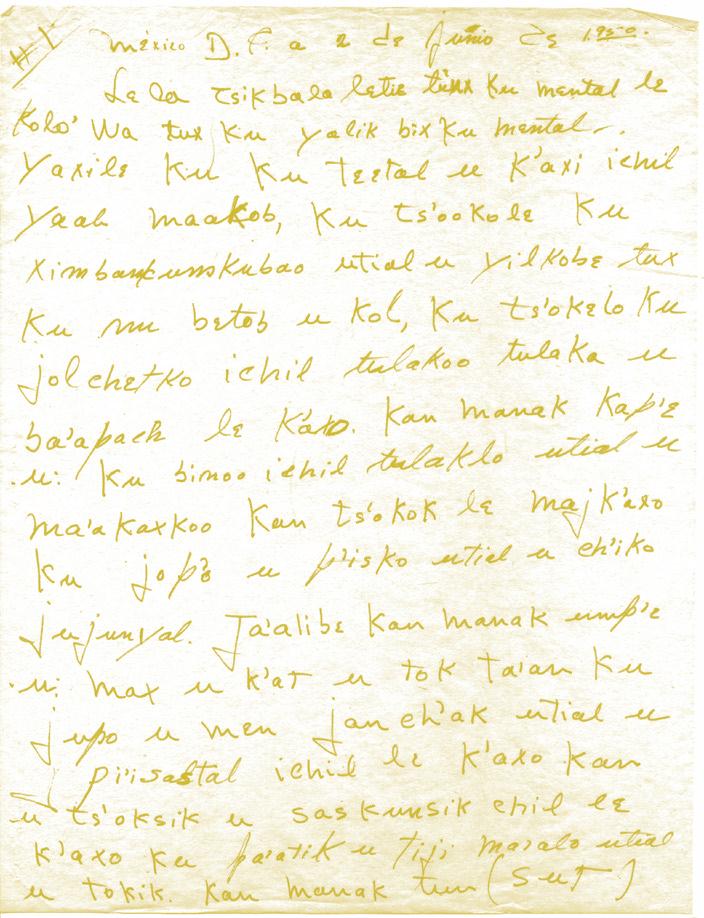 #1
México D.F. a 2 de junio de 1950.
Le la tsikbala letie tunx ku mental le
kolo' Wa tux ku yalik bix ku mental.
Yaxile ku ku tectal u k'axi ichil
yaah maakob, ku ts'ookole ku
utial u yilkobe tux
ku nu betob u kol, ku ts'okelo ku
jolchetko ichil tulakoo tulaka u
ba'apach le k'axo. Kan manak kap'e
.u: ku binoo ichil tulaklo utial u
ma'akaxkoo kan ts'okok le maj k'axo
ku jop'o u p'isko utial u ch'iko
jujunyal. Ja'alibe kan manak ump'e
.u: max u k'at u tok ta'an ku
jupo u men jan ch'ak utial u
pi'isastal ichil le k'axo kan
u ts'oksik u saskunsik chil le
k'axo ku pa'atik u tiji ma'alo utial
u tokik. Kan manak tun (SUT)